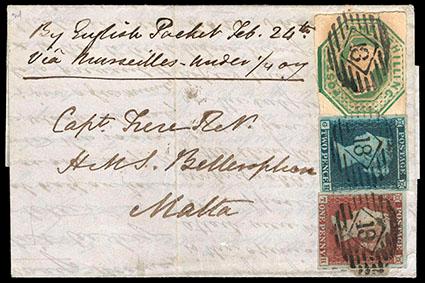 By English Packet Feb. 24th
Via Marseilles - under 1/4 oz
Capt. Frere R.N.
H.M.S. Bellerophon
Malta
SHILLING
POSTAGE
18
TWO PENCE
POSTAGE
18
ONE PENNY